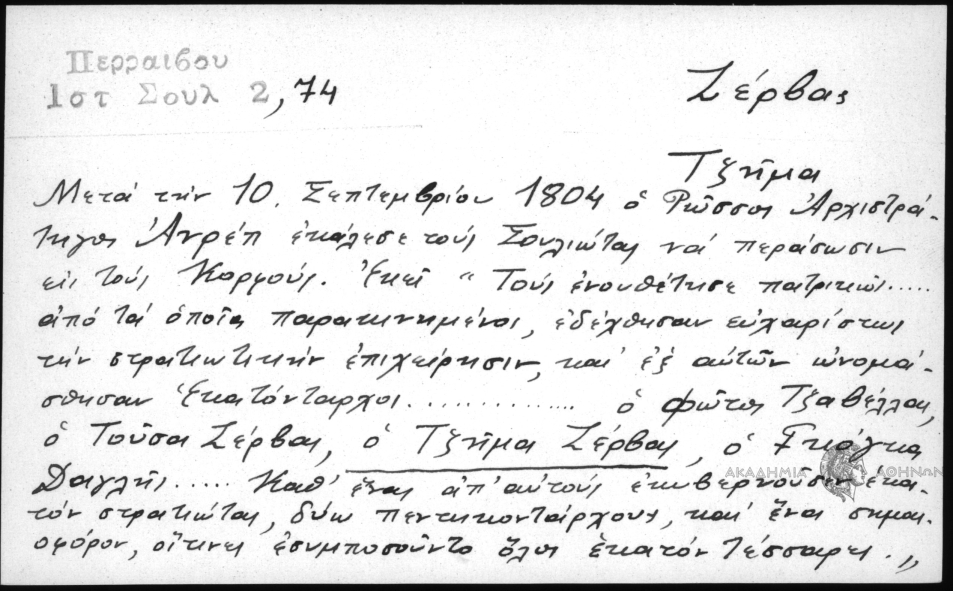 Περραιβου
Ιστ Σουλ 2,74
Ζέρβας
Τζήμα
Μετά την 10. Σεπτεμβρίου 1804 ὁ Ρῶσσος Ἀρχιστρά-
τηγος Ἀνρέπ ἐκάλεσε τούς Σουλιώτας νά περάσωσιν
εἰς τούς Κορφούς. Ἐκεῖ "Τούς ἐνουθέτησε πατρικῶς.....
ἀπό τά ὁποῖα παρακινημένοι, ἐδέχθησαν εὐχαρίστως
τήν στρατιωτικήν ἐπιχείρησιν, καί ἐξ αὐτῶν ὠνομά-
σθησαν Ἑκατόνταρχοι............... ὁ Φῶτος Τζαβέλλας,
ὁ Τούσας Ζέρβας, ὁ Τζήμα Ζέρβας, ὁ Γκόγκα
Δαγλῆς..... Καθ' ἕνας ἀπ' αὐτούς ἐκυβερνοῦσεν ἑκα-
τόν στρατιώτας, δύω πεντηκοντάρχους, καί ἕνα σημαι-
οφόρον, οἵτινες ἐσυμποσοῦντο ὅλοι ἑκατόν τέσσαρες."
ΑΚΑΔΗΜΙΑ ΑΘΗΝΩΝ